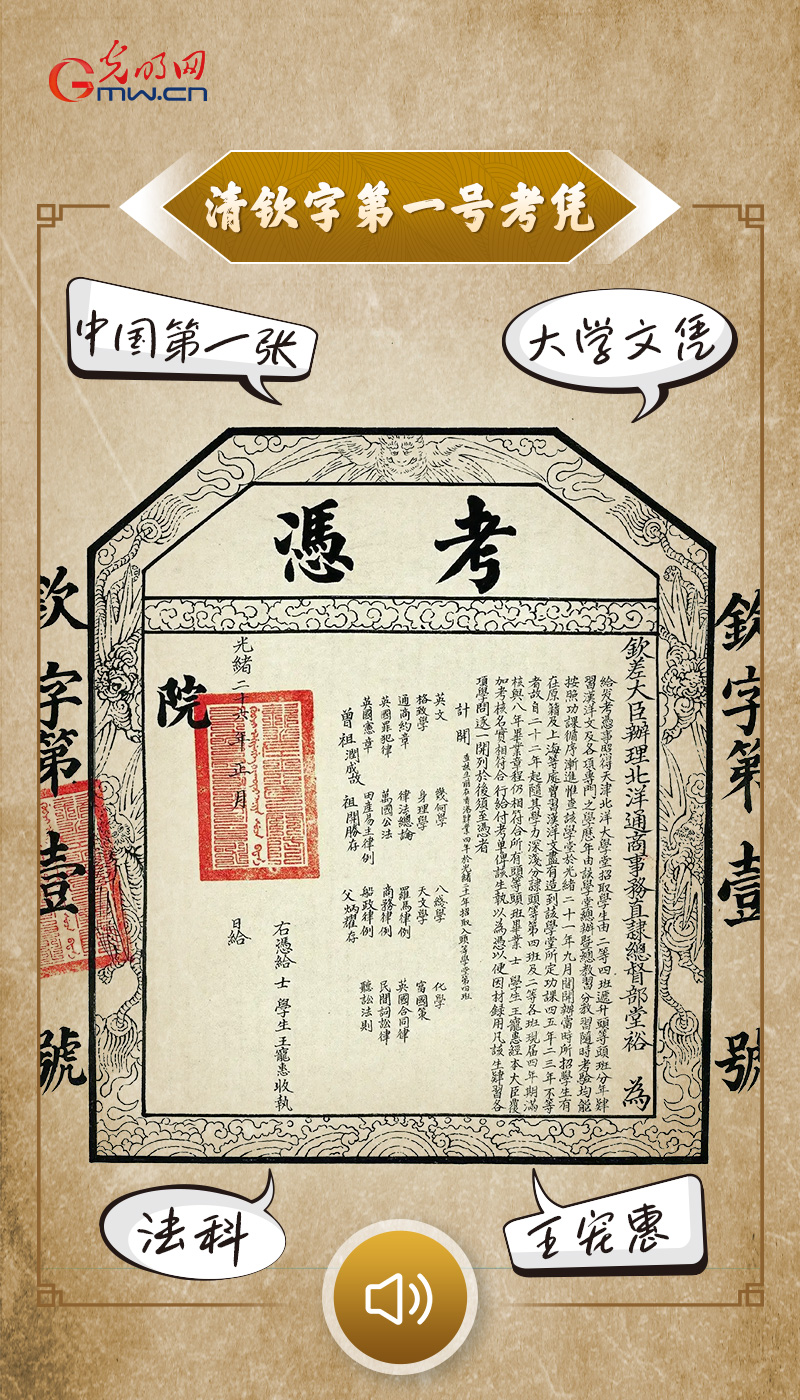 光明网
GMW.CN
清钦字第一号考凭
中国第一张
大学文凭
考憑
欽字第壹號
欽差大臣辦理北洋通商事務直隸總督部堂裕 為
給發考憑事照得天津北洋大學堂招取學生由二等四班遞升頭等頭班分年肄
習漢洋文及各項專門之學歷八年由該學堂總辦暨總教習分教習隨時考驗均能
按照功課循序漸進惟查該學堂於光緒二十一年九月間開辦當時所招學生有
在原籍及上海等處曾習漢洋文藝有造到該學堂所定功課四五年二三年不等
者故自二十二年起隨其學力深淺分隸頭等第四班及二等各班現届四年期滿
核與八年畢業章程仍相符合所有頭等頭班畢業 士 學生王寵惠經本大臣覆
加考核名實相符合行給付考單傳該生執以為憑以便因材録用凡該生肄習各
項學問逐一開列於後須至憑者
計開
英文 幾何學 八線學 化學
格致學 身理學 天文學 富國策
通商約章 律法總論 羅馬律例 英國合同律
英國罪犯律 萬國公法 商務律例 民間詞訟律
英國憲章 田產易主律例 船政律例 聽訟法則
曾祖潤成故 祖開勝存 父炳耀存
右憑給 士 學生王寵惠收執
光緒二十六年正月 日給
院
欽字第壹號
法科
王宠惠